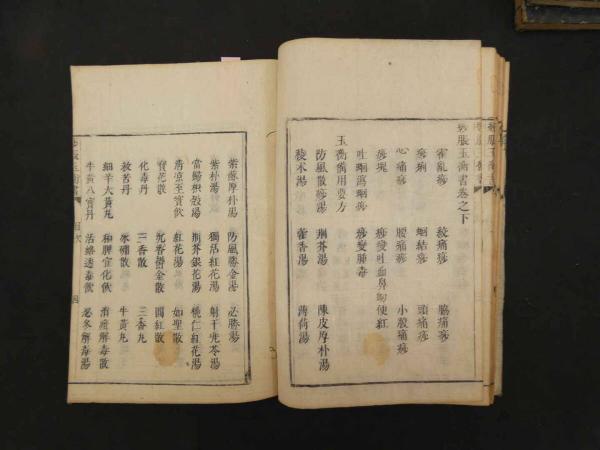 痧脹玉衡書卷之下
霍亂痧 絞痛痧 脇痛痧
痧痢 蛔結痧 頭痛痧
心痛痧 腰痛痧 小腹痛痧
痧塊 痧變吐血鼻衂便紅
吐蛔瀉蛔痧 痧變腫毒
玉衡備用要方
防風散痧湯 荊芥湯 陳皮厚朴湯
稜朮湯 藿香湯 薄荷湯
紫蘇厚朴湯 防風勝金湯 必勝湯
紫朴湯 獨活紅花湯 射干兜苓湯
當歸枳殼湯 荊芥銀花湯 桃仁紅花湯
清凉至寳飲 紅花湯 如聖散
寳花散 沉香鬱金散 圓紅散
化毒丹 三香散 三香丸
救苦丹 氷硼散 牛黃丸
細辛大黃丸 和脾宣化飲 消疳解毒散
牛黃八寳丹 活絡透毒飲 忍冬解毒湯
目次 四